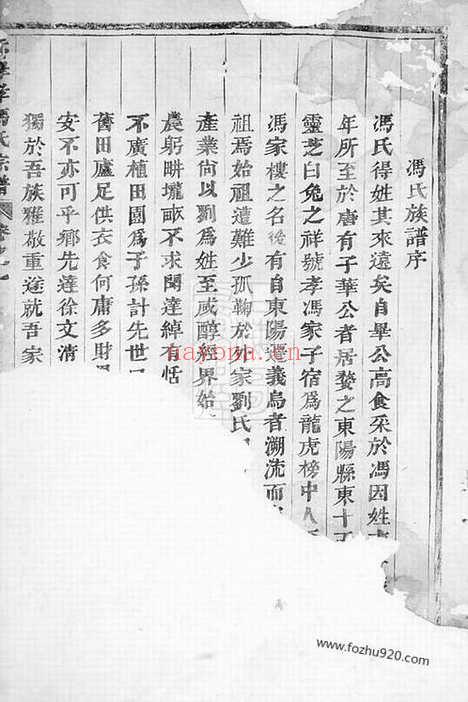 馮氏族譜序
馮氏得姓其來遠矣自畢公高食采於馮因姓
年所至於唐有子華公者居婺之東陽縣東十
靈芝白兔之祥號孝馮家子宿爲龍虎榜中人
馮家樓之名後有自東陽遷義烏者溯流而
祖焉始祖遠難少孤鞠於外家劉氏
產業尙以劉爲姓至咸醇經界始
農躬耕壠畝不求聞達綽有恬
不廣植田園爲子孫計先世
舊田廬足供衣食何庸多財
安不亦可乎鄉先達徐文清
獨於吾族雅敬重逵就吾家
馮氏宗譜
卷之一
haxona.cn
www.fozhu920.com